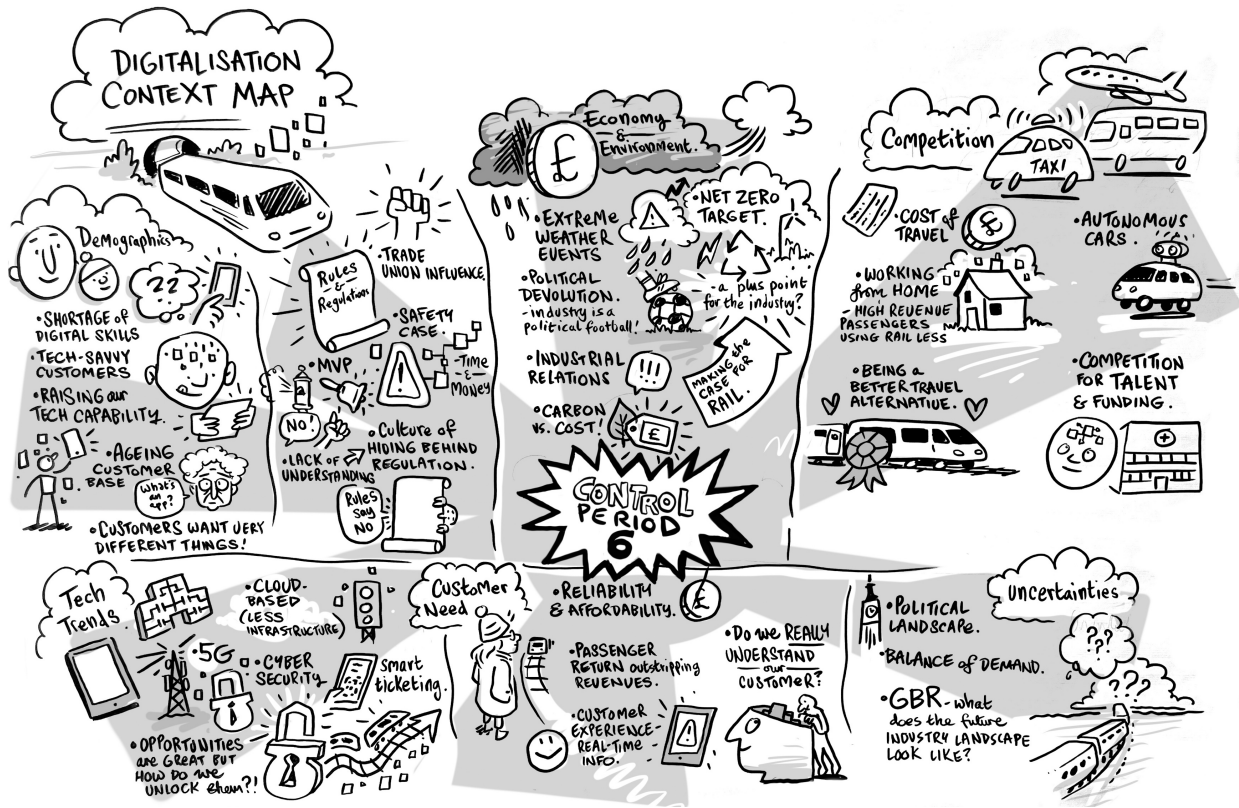 DIGITALISATION
CONTEXT MAP
Demographics
??
•SHORTAGE of
DIGITAL SKILLS
•TECH-SAVVY
CUSTOMERS
•RAISING our
TECH CAPABILITY.
•AGEING
CUSTOMER
BASE
What's
an
app?
•CUSTOMERS WANT VERY
DIFFERENT THINGS!
Rules
&
Regulations
•TRADE
UNION INFLUENCE
•SAFETY
CASE.
-Time
&
Money
•MVP
NO!
•LACK of
UNDERSTANDING
•Culture of
HIDING BEHIND
REGULATION.
Rules
say
NO
£
Economy
&
Environment.
•EXTREME
WEATHER
EVENTS
!
•NET ZERO
TARGET.
-a plus point
for the industry?
•POLITICAL
DEVOLUTION.
-industry is a
political football!
•INDUSTRIAL
RELATIONS
!!!
MAKING the
CASE FOR
RAIL.
•CARBON
vs. COST!
£
CONTROL
PERIOD
6
Competition
TAXI
•COST of
TRAVEL
£
•AUTONOMOUS
CARS.
•WORKING
from HOME
-HIGH REVENUE
PASSENGERS
USING RAIL LESS
•BEING A
BETTER TRAVEL
ALTERNATIVE.
•COMPETITION
FOR TALENT
& FUNDING.
Tech
Trends
•CLOUD-
BASED
(LESS
INFRASTRUCTURE)
•5G
•CYBER
SECURITY
smart
ticketing.
•OPPORTUNITIES
are GREAT BUT
HOW DO we
UNLOCK them?!
Customer
Need
•RELIABILITY
& AFFORDABILITY.
£
•PASSENGER
RETURN outstripping
REVENUES.
•CUSTOMER
EXPERIENCE-
REAL-TIME
INFO.
!
•Do we REALLY
UNDERSTAND
our
CUSTOMER?
Uncertainties
•POLITICAL
LANDSCAPE.
•BALANCE of DEMAND.
•GBR-what
does the future
INDUSTRY LANDSCAPE
LOOK LIKE?
???
???